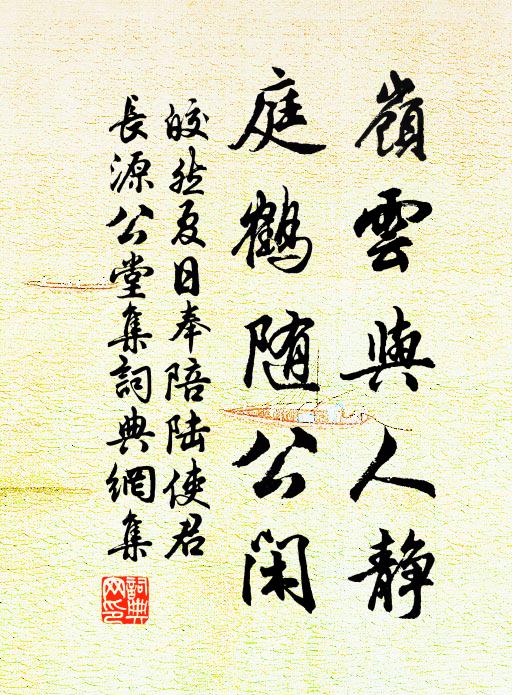 嶺雲與人静
庭鶴随公閑
皎然夏日奉陪陆使君
長源公堂集詞典網集
詞典
网印